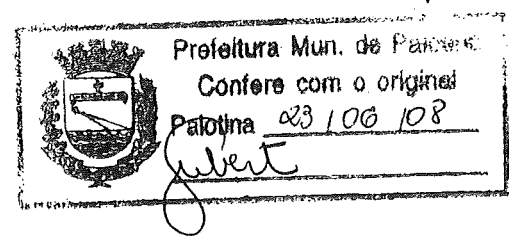 Prefeitura Mun. de
Confere com o original
Palotina 23 / 06 / 08